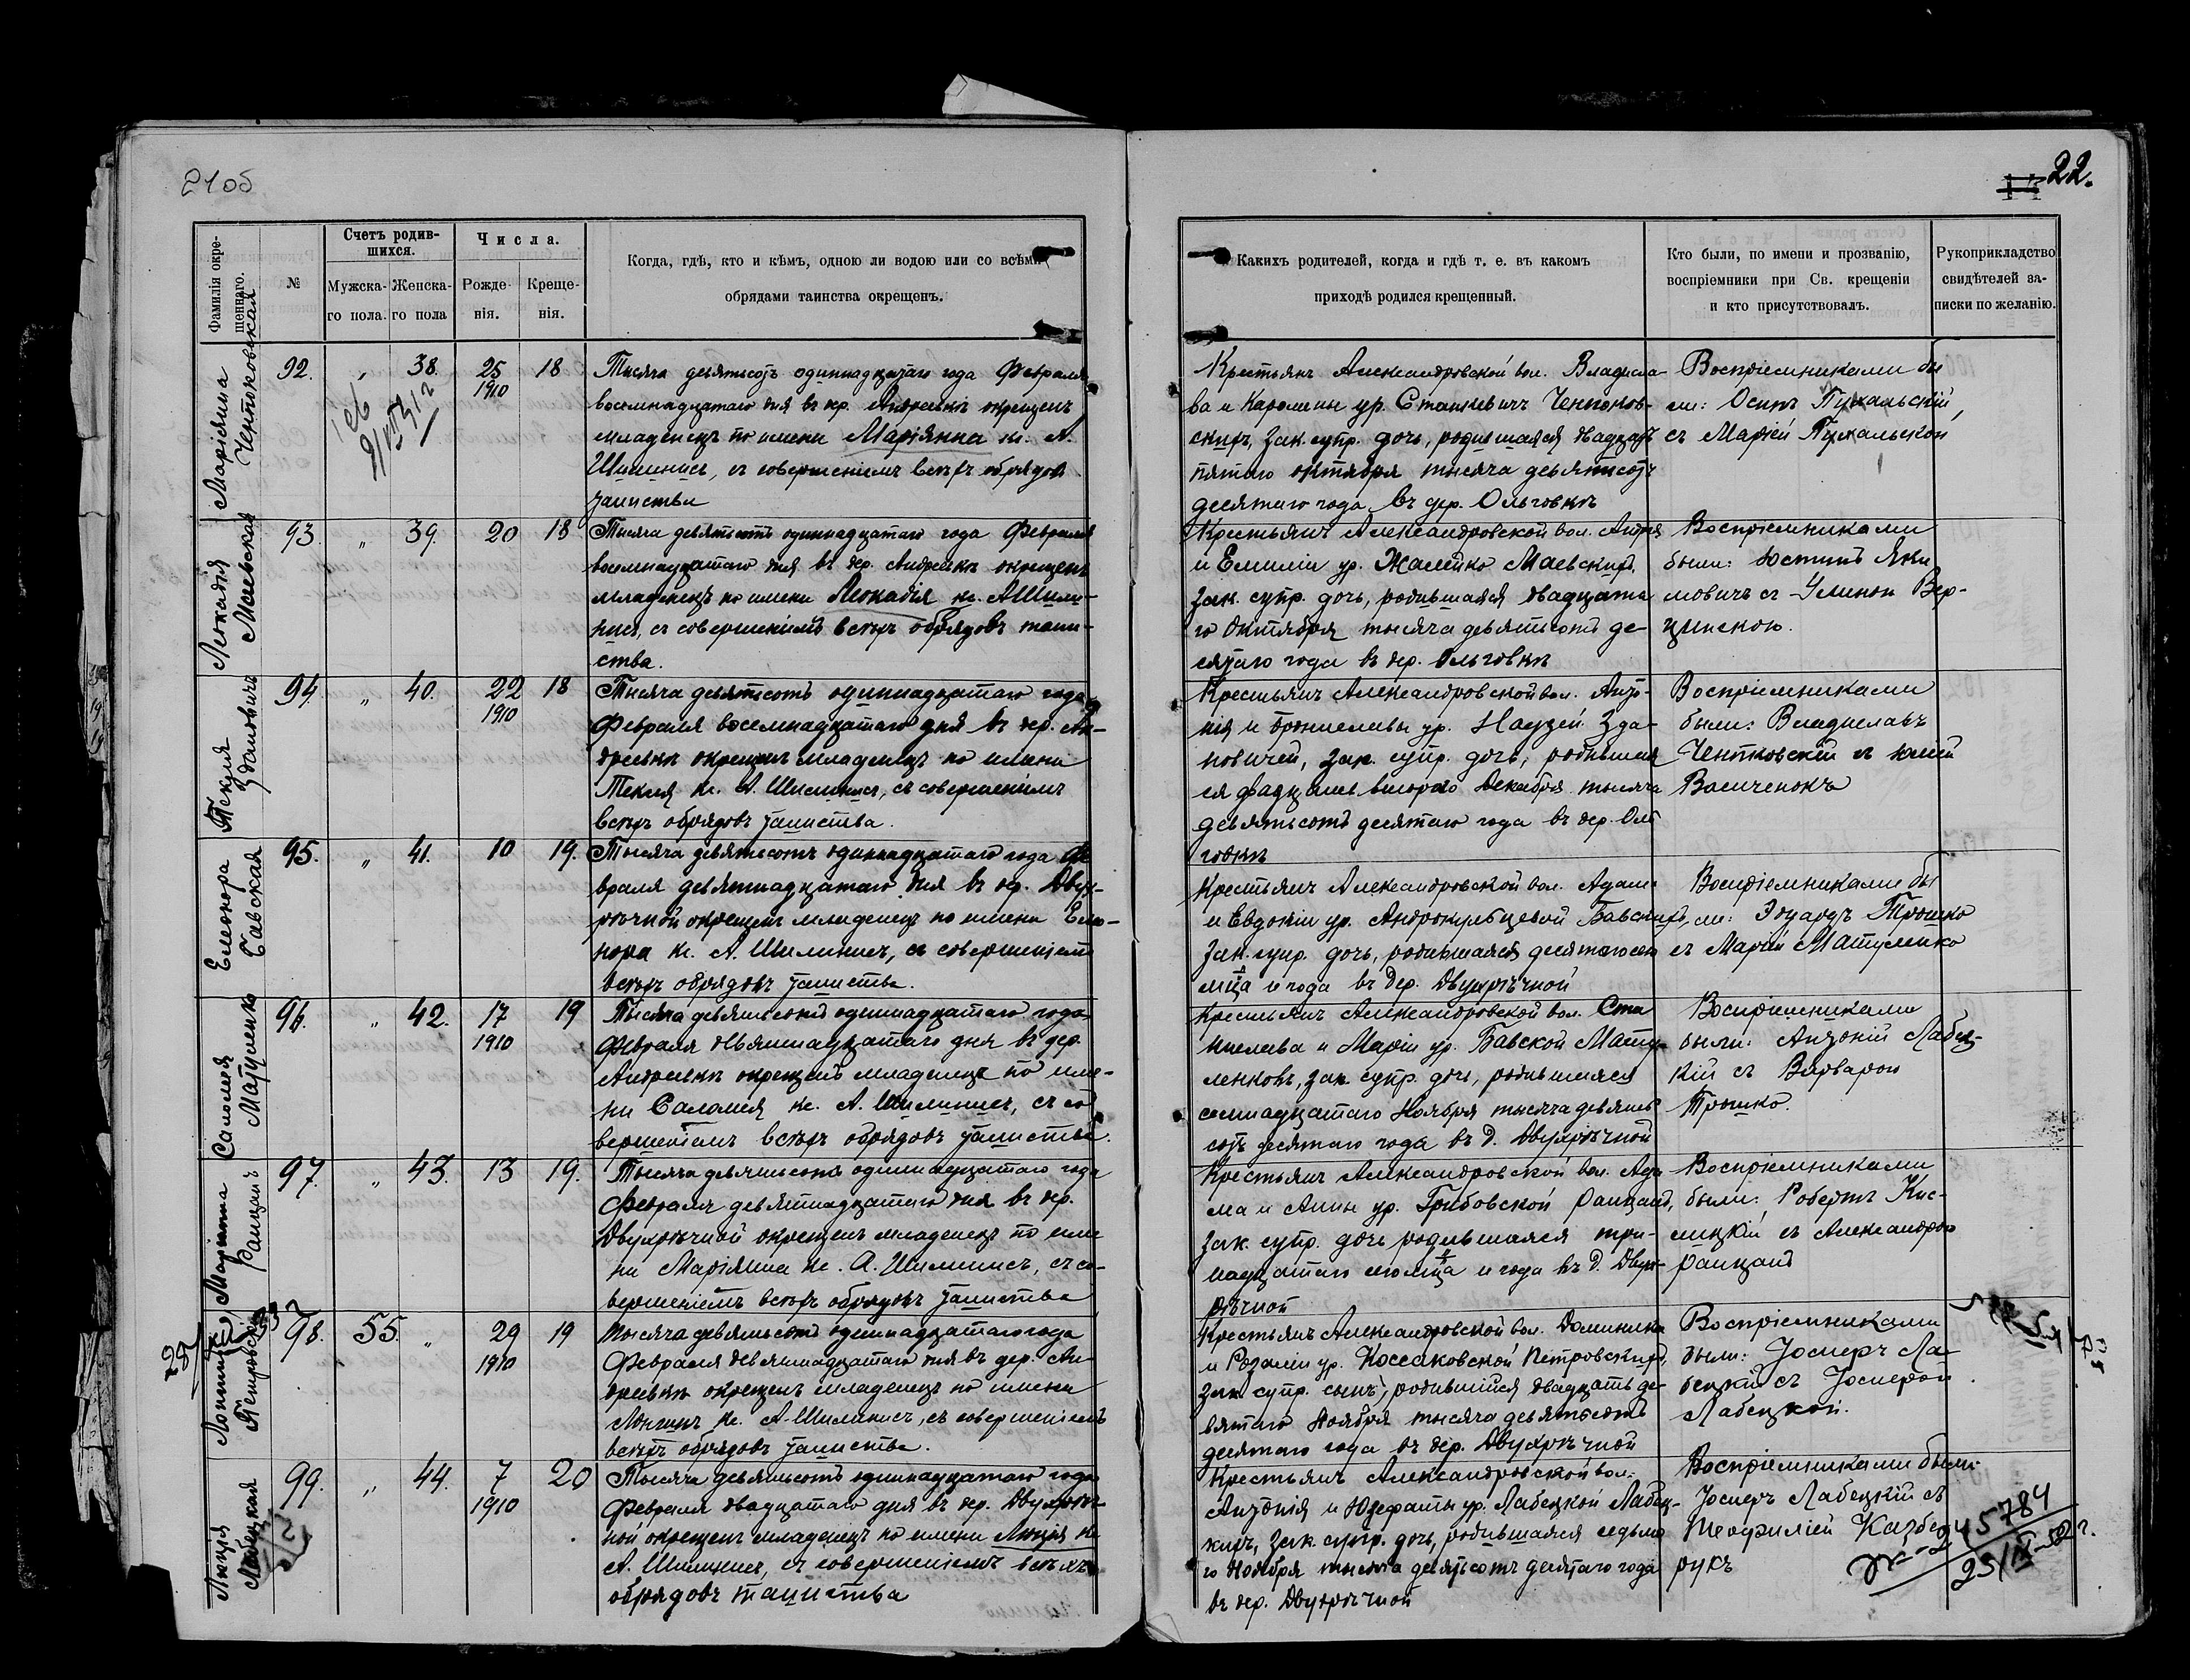 21об
22.
Фамилія окрещеннаго.
№
Счетъ родившихся.
Мужска-го пола.
Женска-го пола
Числа.
Рожде-нія.
Креще-нія.
Когда, гдѣ, кто и кѣмъ, одною ли водою или со всѣми
обрядами таинства окрещенъ.
Какихъ родителей, когда и гдѣ т. е. въ какомъ
приходѣ родился крещенный.
Кто были, по имени и прозванію,
воспріемники при Св. крещеніи
и кто присутствовалъ.
Рукоприкладство
свидѣтелей за-
писки по желанію.
Маріянна
92. " 38. 25 18
1910
Тысяча девятьсотъ одиннадцатаго года Февраля
восемнадцатаго дня въ др. Андреевкѣ окрещенъ
младенецъ по имени Маріянна кс. А.
Шилинисъ, съ совершеніемъ всѣхъ обрядовъ
таинства
Крестьянъ Александровской вол. Владисла-
ва и Каролины ур. Станкевичъ
скихъ, зак. супр. дочь, родившаяся двадцать
пятаго октября тысяча девятьсотъ
десятаго года въ дер. Ольговкѣ
Воспріемниками бы
ли: Осипъ
съ Маріей
Леокадія
Маевская
93. " 39. 20 18
Тысяча девятьсотъ одиннадцатаго года Февраля
восемнадцатаго дня въ дер. Андреевкѣ окрещенъ
младенецъ по имени Леокадія кс. А Шили-
нисъ, съ совершеніемъ всѣхъ обрядовъ таин-
ства.
Крестьянъ Александровской вол.
и Емиліи ур. Жамейко Маевскихъ,
зак. супр. дочь, родившаяся двадцата
го Октября тысяча девятьсотъ де-
сятаго года въ дер. Ольговкѣ
Воспріемниками
были: Юстинъ Яки
мовичъ съ Вер-
цинскою.
Текля
Здановичъ
94. " 40. 22 18
1910
Тысяча девятьсотъ одиннадцатаго года
Февраля восемнадцатаго дня въ дер. Ан-
дреевкѣ окрещенъ младенецъ по имени
Текля кс. А. Шилинисъ, съ совершеніемъ
всѣхъ обрядовъ таинства.
Крестьянъ Александровской вол. Анто-
нія и Брониславы ур. Зда-
новичей, зак. супр. дочь, родившая
ся двадцать второго Декабря тысяча
девятьсотъ десятаго года въ дер. Оль
говкѣ
Воспріемниками
были: Владиславъ
съ Юліей
Елеонора
Бавская
95. " 41. 10 19.
Тысяча девятьсотъ одиннадцатаго года Фе
враля девятнадцатаго дня въ др. Двух-
рѣчной окрещенъ младенецъ по имени Елео-
нора кс. А. Шилинисъ, съ совершеніемъ
всѣхъ обрядовъ таинства.
Крестьянъ Александровской вол. Адама
и Евдокіи ур. Бавскихъ,
зак. супр. дочь, родившаяся десятаго сего
мца и года въ дер. Двухрѣчной
Воспріемниками бы
ли: Эдуардъ Трошко
съ Маріей Матуленко
Саломея
Матуленко
96. " 42. 17 19
1910
Тысяча девятьсотъ одиннадцатаго года
Февраля девятнадцатаго дня въ дер.
Андреевкѣ окрещенъ младенецъ по име-
ни Саломея кс. А. Шилинисъ, съ со
вершеніемъ всѣхъ обрядовъ таинства.
Крестьянъ Александровской вол. Ста
нислава и Маріи ур. Бавской Мату-
ленковъ, зак. супр. дочь, родившаяся
семнадцатаго Ноября тысяча девять
сотъ десятаго года въ д. Двухрѣчной
Воспріемниками
были: Антоній Лабец-
кій съ Варварой
Трошко.
Маріянна
Ранцанъ
97. " 43. 13 19.
Тысяча девятьсотъ одиннадцатаго года
Февраля девятнадцатаго дня въ др.
Двухрѣчной окрещенъ младенецъ по име
ни Маріянна кс. А. Шилинисъ, съ со-
вершеніемъ всѣхъ обрядовъ таинства
Крестьянъ Александровской вол. Ада
ма и Анны ур. Грибовской Ранцанъ,
зак. супр. дочь родившаяся три-
надцатаго сего мца и года въ д. Двух-
рѣчной
Воспріемниками
были: Робертъ Кис-
лицкій съ Александрой
Ранцанъ
Петровскій
98. 55. " 29 19
1910
Тысяча девятьсотъ одиннадцатаго года
Февраля девятнадцатаго дня въ дер. Ан-
дреевкѣ окрещенъ младенецъ по имени
Лонгинъ кс. А. Шилинисъ, съ совершеніемъ
всѣхъ обрядовъ таинства.
Крестьянъ Александровской вол. Доминика
и Розаліи ур. Коссаковской Петровскихъ,
зак. супр. сынъ, родившійся двадцать де-
вятаго Ноября тысяча девятьсотъ
десятаго года въ дер. Двухрѣчной
Воспріемниками
были: Іосифъ Ла-
бецкій съ Іосифой
Лабецкой.
Люція
Лабецкая
99. " 44. 7 20
1910
Тысяча девятьсотъ одиннадцатаго года
Февраля двадцатаго дня въ дер. Двухрѣч-
ной окрещенъ младенецъ по имени Люція кс
А. Шилинисъ, съ совершеніемъ всѣхъ
обрядовъ таинства
Крестьянъ Александровской вол.
Антонія и Юзефаты ур. Лабецкой Лабец-
кихъ, зак. супр. дочь, родившаяся седьмо
го Ноября тысяча девятьсотъ десятаго года
въ дер. Двухрѣчной
Воспріемниками были
Іосифъ Лабецкій съ
Теофиліей Казбе-
рукъ